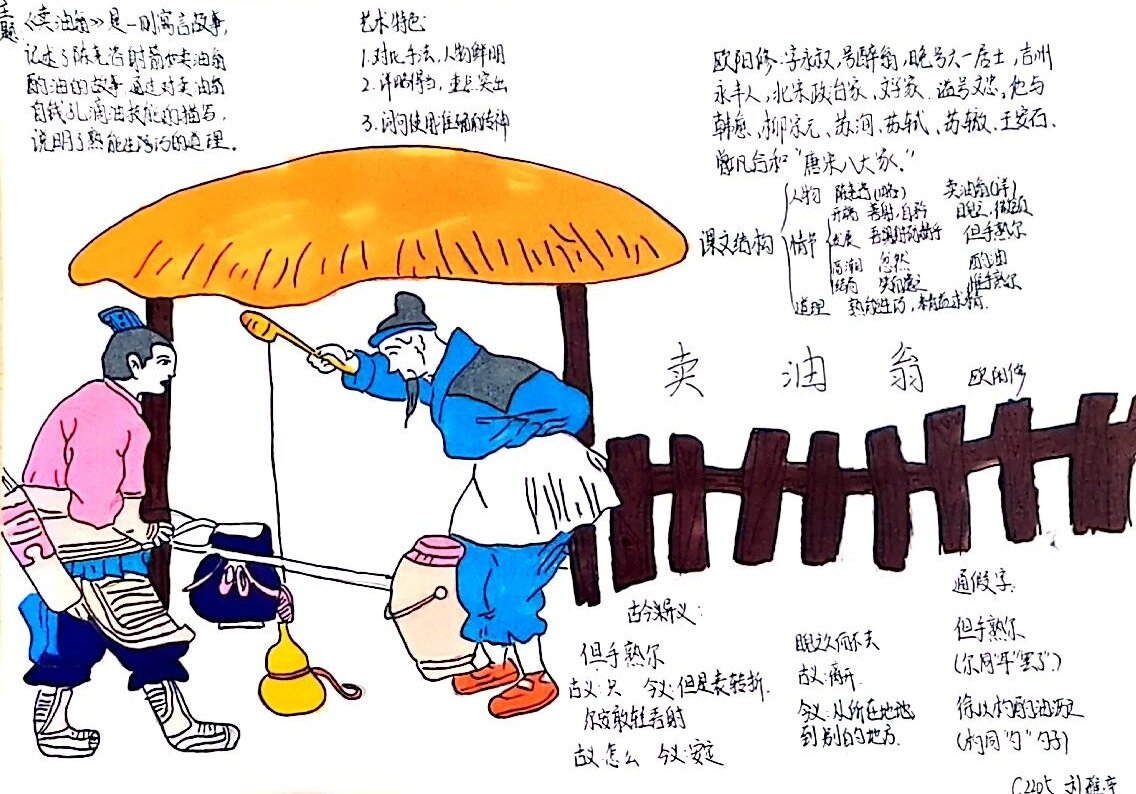 主题:《卖油翁》是一则寓言故事,
记述了陈尧咨射箭和卖油翁
酌油的故事,通过对卖油翁
自钱孔滴油技能的描写,
说明了熟能生巧的道理。
艺术特色:
1.对比手法,人物鲜明
2.详略得当,重点突出
3.词句使用准确而传神
欧阳修:字永叔,号醉翁,晚号六一居士,吉州
永丰人,北宋政治家、文学家、谥号文忠,他与
韩愈、柳宗元、苏洵、苏轼、苏辙、王安石、
曾巩合称“唐宋八大家。”
课文结构
人物 陈尧咨(略) 卖油翁(详)
情节
开端 善射,自矜 睨之,微颔
发展 但手熟尔
高潮 忿然 酌油
结局 笑而遣之 惟手熟尔
道理 熟能生巧,精益求精.
卖油翁 欧阳修
古今异义:
但手熟尔
古义:只 今义:但是表转折.
尔安敢轻吾射
古义:怎么 今义:安定
睨之久而不去
古义:离开.
今义:从所在地
到别的地方.
通假字.
但手熟尔
(尔同“耳”“罢了”)
徐以杓酌油沥之
(杓同“勺”勺子)
C2205 刘雅